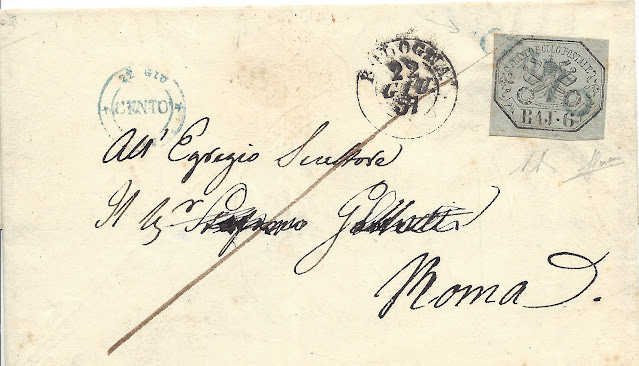 22 GIU
CENTO
BOLOGNA
22
GIU
57
FRANCO BOLLO POSTALE
BAJ·6
All' Egregio Scrittore
Il Sigr
Roma